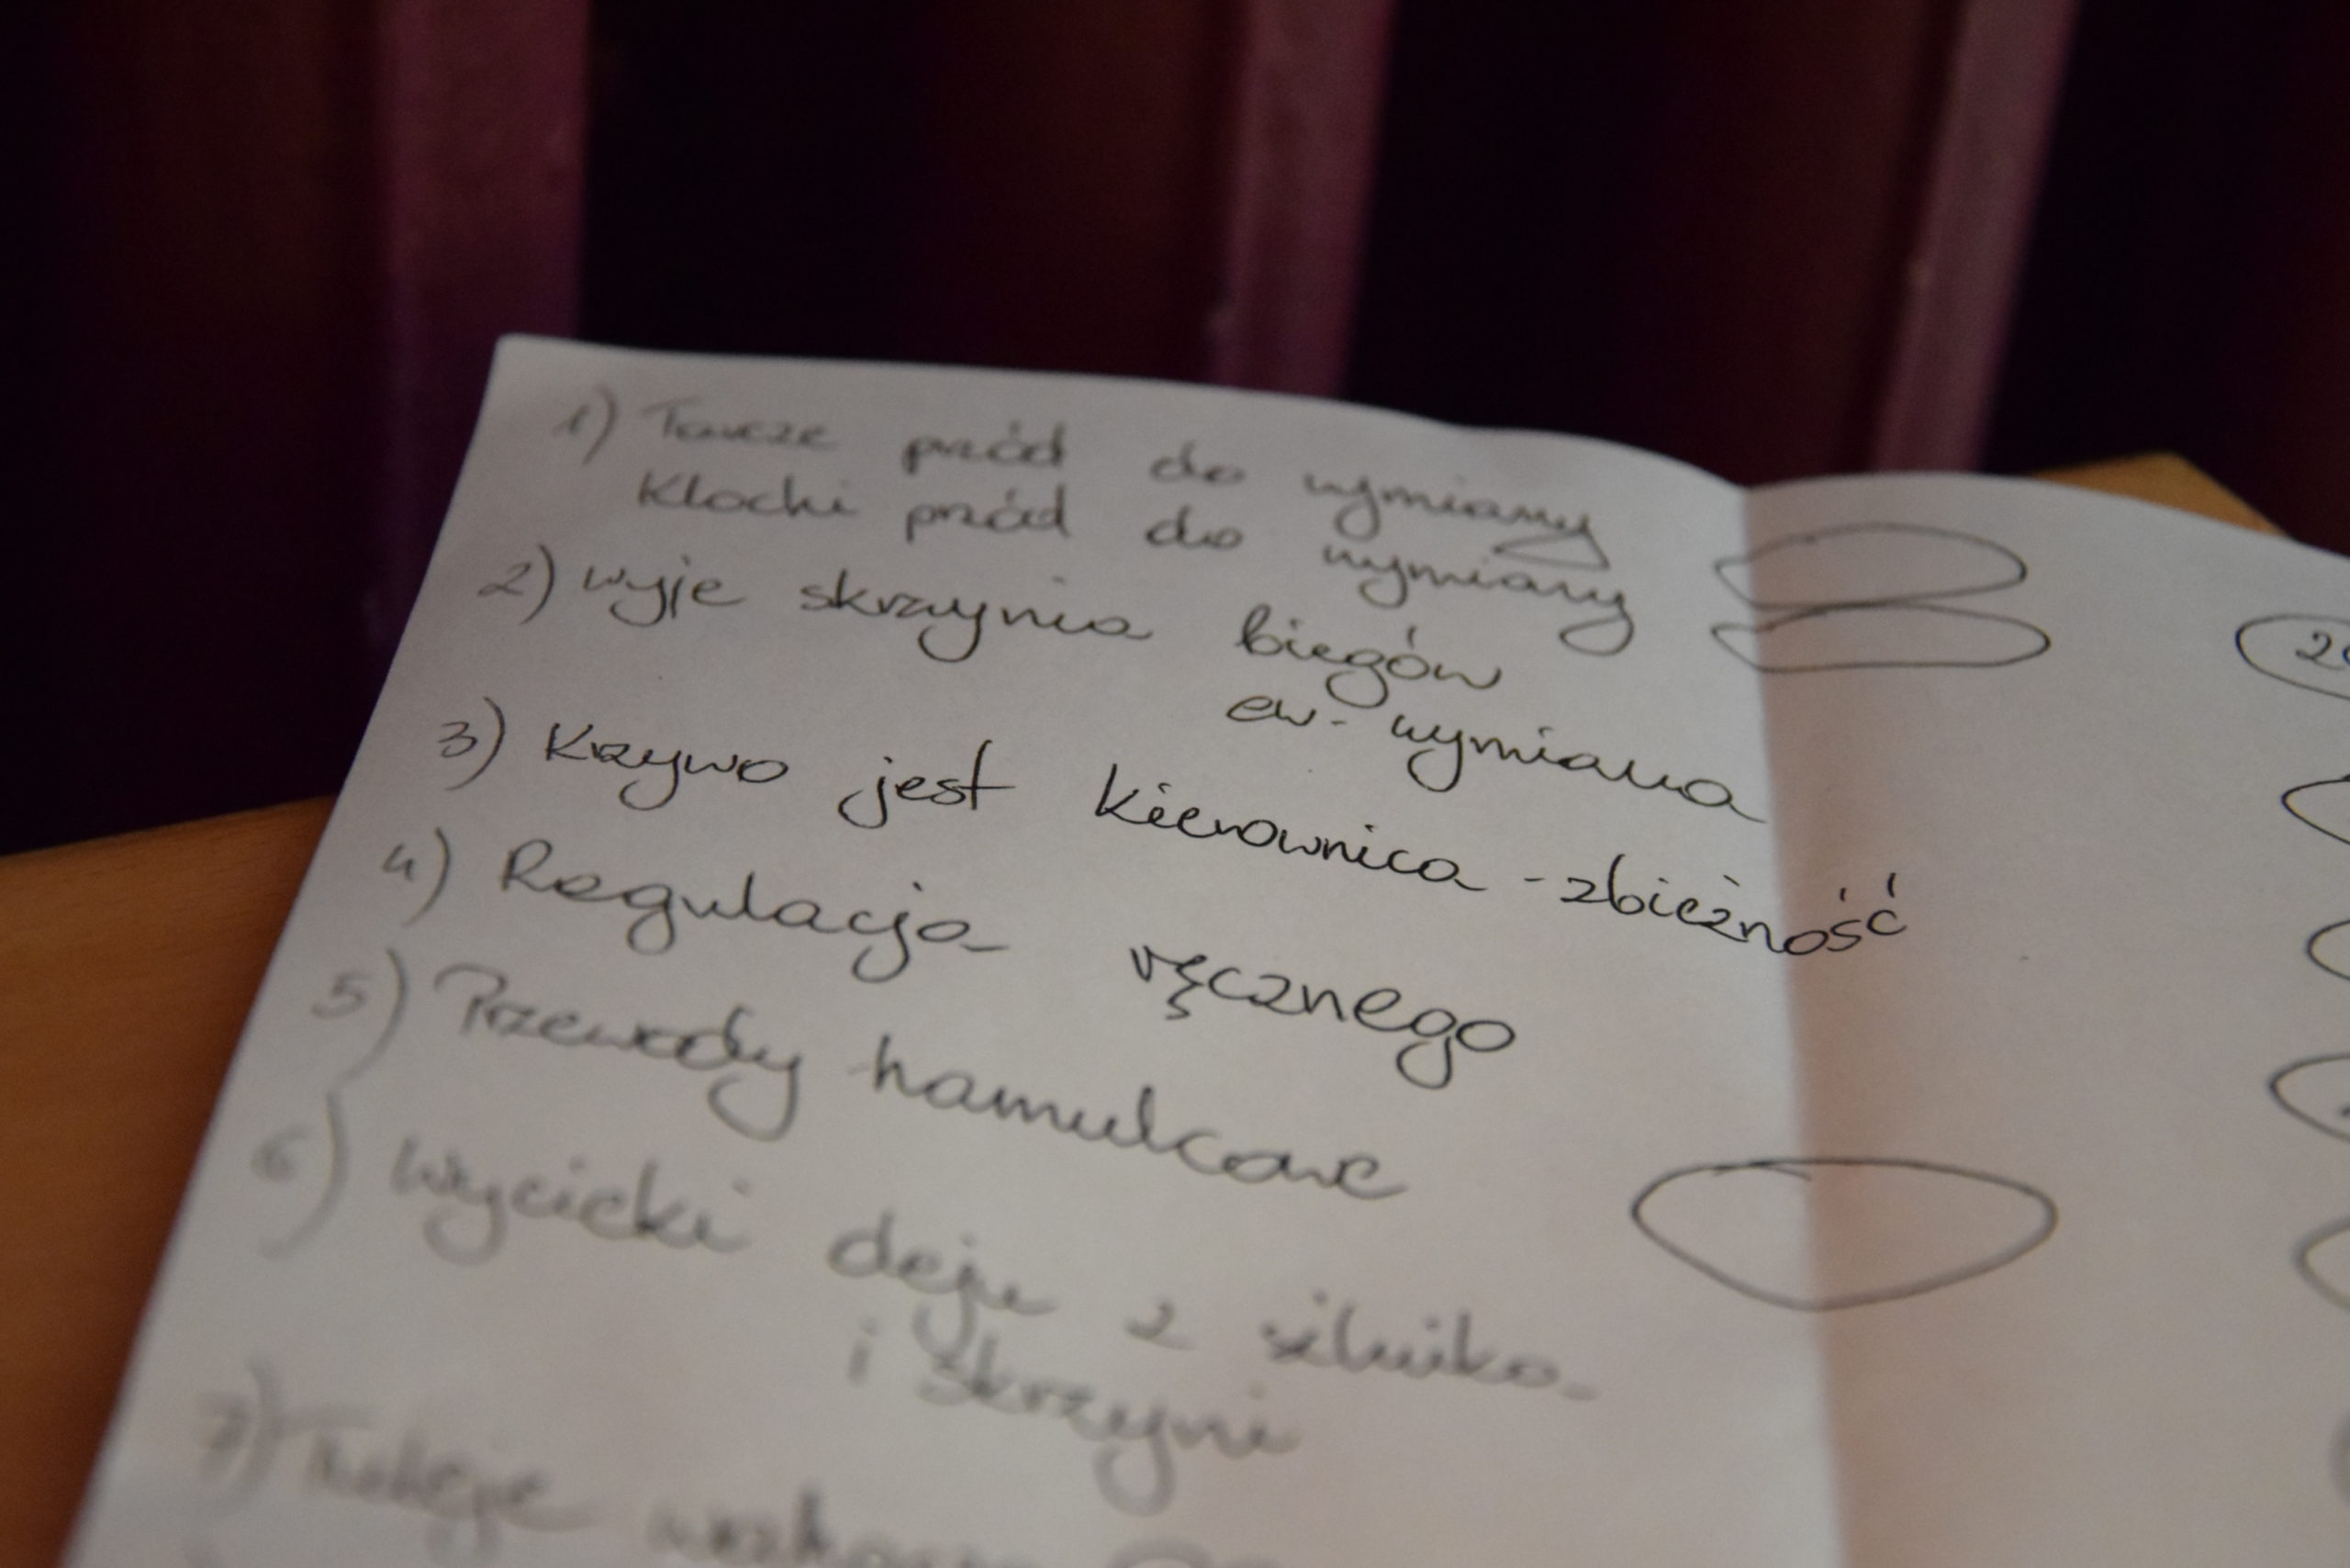 1) Tarcze przód do wymiany
Klocki przód do wymiany
2) wyje skrzynia biegów
ew. wymiana
3) Krzywo jest kierownica - zbieżność
4) Regulacja ręcznego
5) Przewody hamulcowe
6) Wycieki oleju z silnika
i skrzyni
7) Tuleje